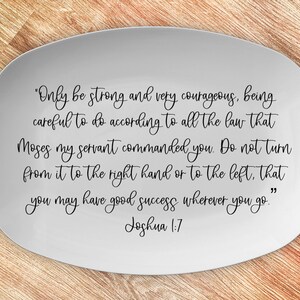 "Only be strong and very courageous, being
careful to do according to all the law that
Moses my servant commanded you. Do not turn
from it to the right hand or to the left, that
you may have good success wherever you go."
Joshua 1:7